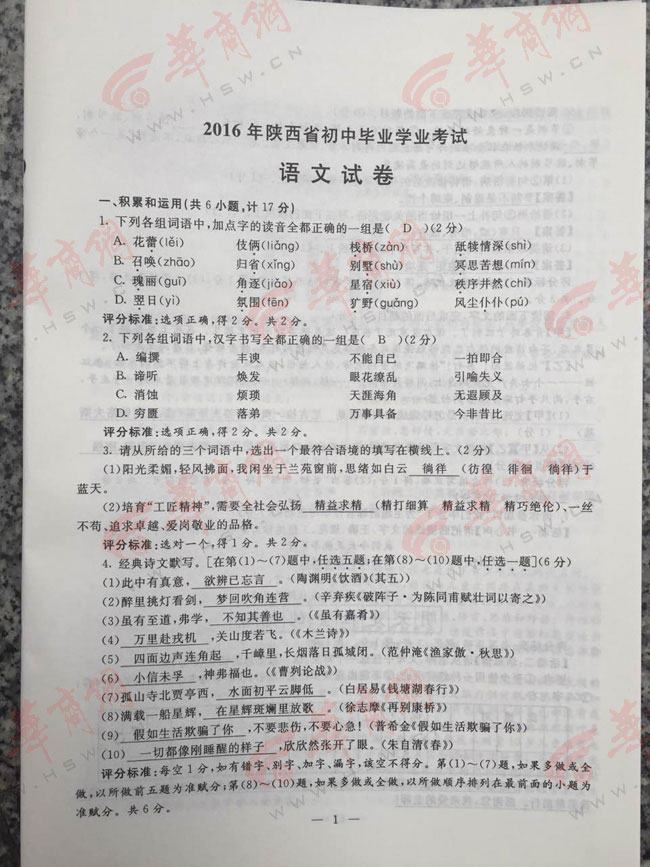 華商網
WWW.HSW.CN
2016年陕西省初中毕业学业考试
语文试卷
一、积累和运用(共6小题,计17分)
1. 下列各组词语中,加点字的读音全都正确的一组是( D )(2分)
A. 花蕾(lěi) 伎俩(liǎng) 栈桥(zàn) 舐犊情深(shì)
B. 召唤(zhāo) 归省(xǐng) 别墅(shù) 冥思苦想(mín)
C. 瑰丽(guī) 角逐(jiǎo) 星宿(xiù) 秩序井然(chì)
D. 翌日(yì) 氛围(fēn) 犷野(guǎng) 风尘仆仆(pú)
评分标准:选项正确,得2分。共2分。
2. 下列各组词语中,汉字书写全都正确的一组是( B )(2分)
A. 编撰 丰谀 不能自已 一拍即合
B. 谛听 焕发 眼花缭乱 引喻失义
C. 消蚀 烦琐 天涯海角 无遐顾及
D. 穷匮 落弟 万事具备 今非昔比
评分标准:选项正确,得2分。共2分。
3. 请从所给的三个词语中,选出一个最符合语境的填写在横线上。(2分)
(1)阳光柔媚,轻风拂面,我闲坐于兰苑窗前,思绪如白云 徜徉 (彷徨 徘徊 徜徉)于
蓝天。
(2)培育“工匠精神”,需要全社会弘扬 精益求精 (精打细算 精益求精 精巧绝伦)、一丝
不苟、追求卓越、爱岗敬业的品格。
评分标准:选对一个,得1分。共2分。
4. 经典诗文默写。[在第(1)~(7)题中,任选五题;在第(8)~(10)题中,任选一题](6分)
(1)此中有真意, 欲辨已忘言 。(陶渊明《饮酒》(其五))
(2)醉里挑灯看剑, 梦回吹角连营 。(辛弃疾《破阵子·为陈同甫赋壮词以寄之》)
(3)虽有至道,弗学, 不知其善也 。(《虽有嘉肴》)
(4) 万里赴戎机 ,关山度若飞。(《木兰诗》)
(5) 四面边声连角起 ,千嶂里,长烟落日孤城闭。(范仲淹《渔家傲·秋思》)
(6) 小信未孚 ,神弗福也。(《曹刿论战》)
(7)孤山寺北贾亭西, 水面初平云脚低 。(白居易《钱塘湖春行》)
(8)满载一船星辉, 在星辉斑斓里放歌 。(徐志摩《再别康桥》)
(9) 假如生活欺骗了你 ,不要悲伤,不要心急!(普希金《假如生活欺骗了你》)
(10) 一切都像刚睡醒的样子 ,欣欣然张开了眼。(朱自清《春》)
评分标准:每空1分,如有错字、别字、加字、漏字,该空不得分。第(1)~(7)题,如果多做或全
做,以所做前五题为准赋分;第(8)~(10)题,如果多做或全做,以所做顺序排列在最前面的小题为
准赋分。共6分。
— 1 —